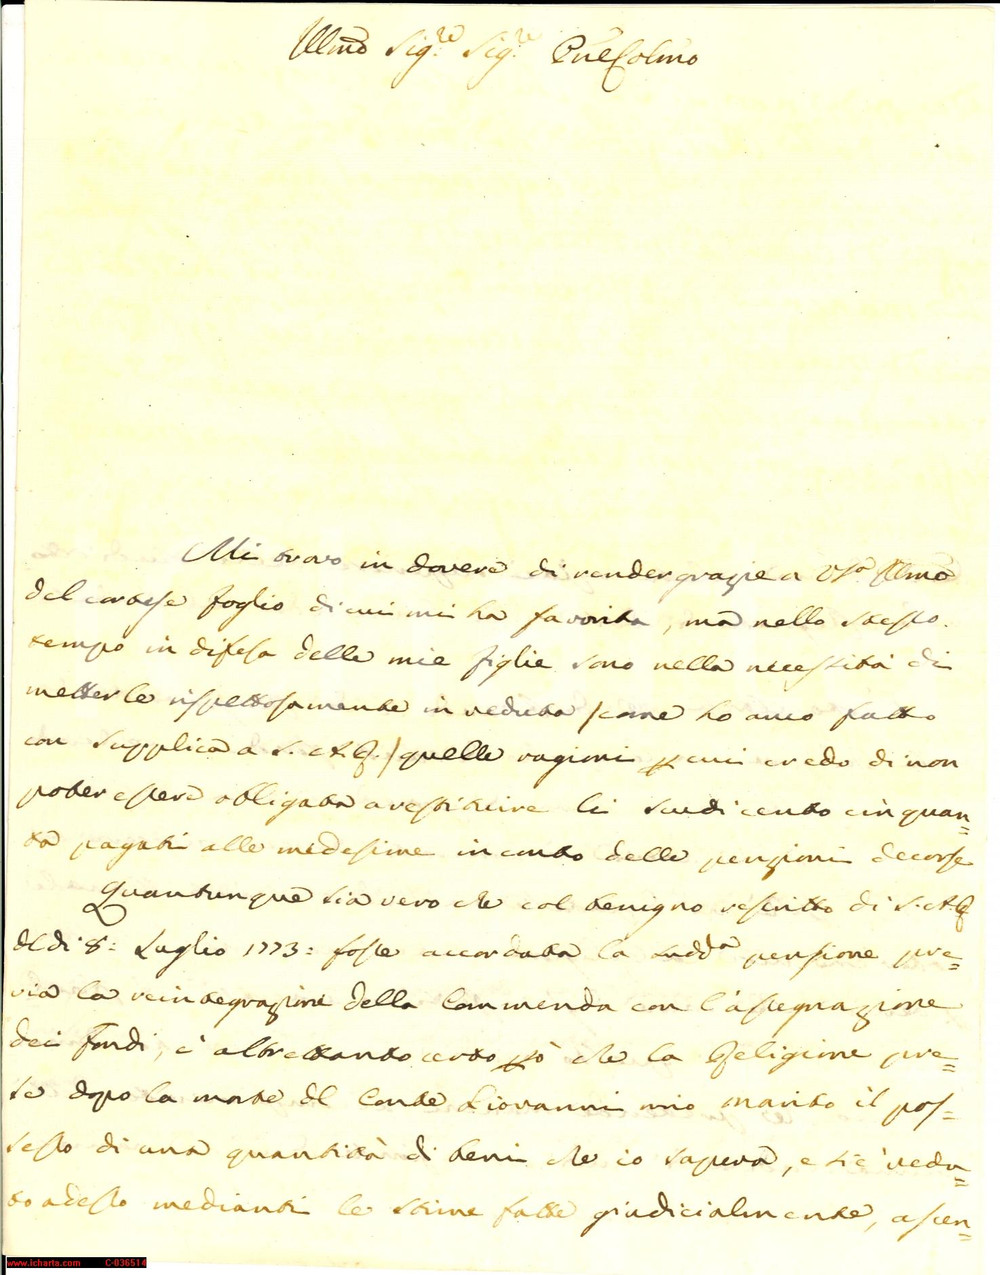 Illmo Sig:re Sig:re Pne Colmo
Mi trovo in dovere di render grazie a VSa Illma
del cortese foglio di cui mi ha favorita, ma nello stesso
tempo in difesa delle mie figlie sono nella necessità di
metterle rispettosamente in veduta /come ho anco fatto
con supplica a S. A. R./ quelle ragioni p cui credo di non
poter essere obligata a restituire li scudi cento cinquan=
ta pagati alle medesime in conto delle penzioni decorse
Quantunque sia vero che col benigno rescritto di S. A. R
del dì 8: Luglio 1773: fosse accordata la sudda pensione pre=
via la reintegrazione della Commenda con l'assegnazione
dei Fondi, è altrettanto certo pò che la Religione pre=
se dopo la morte del Conte Giovanni mio marito il pos=
sesso di una quantità di beni che io sapeva, e si è vedu=
to adesso medianti le stime fatte giudicialmente, ascen=
www.icharta.com C-036514